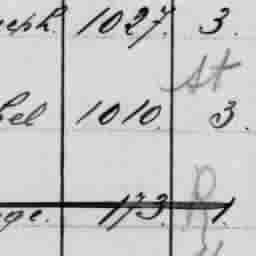 eph. 1027. 3.
St
el 1010. 3.
R
ge. 173. 1.